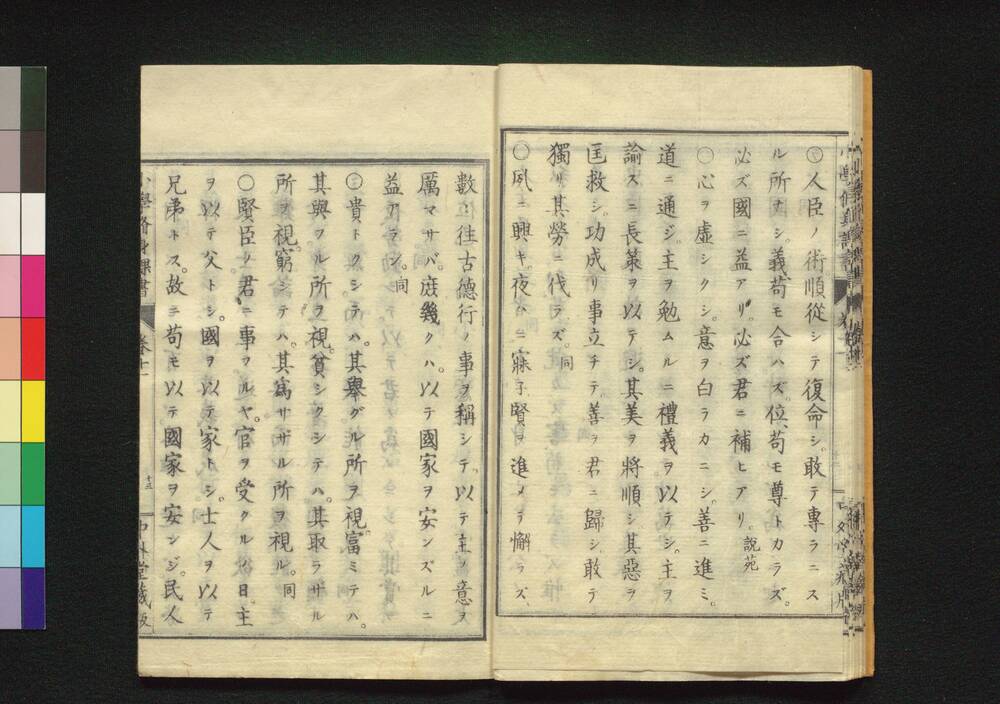 〇人臣ノ術順從シテ復命シ。敢テ專ラニス
ル所ナシ。義苟モ合ハズ。位苟モ尊トカラズ。
必ズ國ニ益アリ。必ズ君ニ補ヒアリ。說苑
〇心ヲ虛シクシ。意ヲ白ラカニシ。善ニ進ミ。
道ニ通ジ。主ヲ勉ムルニ禮義ヲ以テシ。主ヲ
諭スニ長策ヲ以テシ。其美ヲ將順シ其惡ヲ
匡救シ。功成リ事立チテ。善ヲ君ニ歸シ。敢テ
獨リ其勞ニ伐ラズ。同
〇夙ニ興キ。夜ハニ寐子。賢ヲ進メテ懈ラズ。
數〻往古德行ノ事ヲ稱シテ。以テ主ノ意ヲ
厲マサバ。庶幾クハ。以テ國家ヲ安ンズルニ
益アラン。同
〇貴トクシテハ。其擧グル所ヲ視。富ミテハ。
其與フル所ヲ視。貧シクシテハ。其取ラザル
所ヲ視。窮シテハ。其爲サザル所ヲ視ル。同
〇賢臣ノ君ニ事フルヤ。官ヲ受クルノ日。主
ヲ以テ父トシ。國ヲ以テ家トシ。士人ヲ以テ
兄弟トス。故ニ苟モ以テ國家ヲ安ンジ。民人
小學脩身課書 卷十一 十三 中外堂藏版